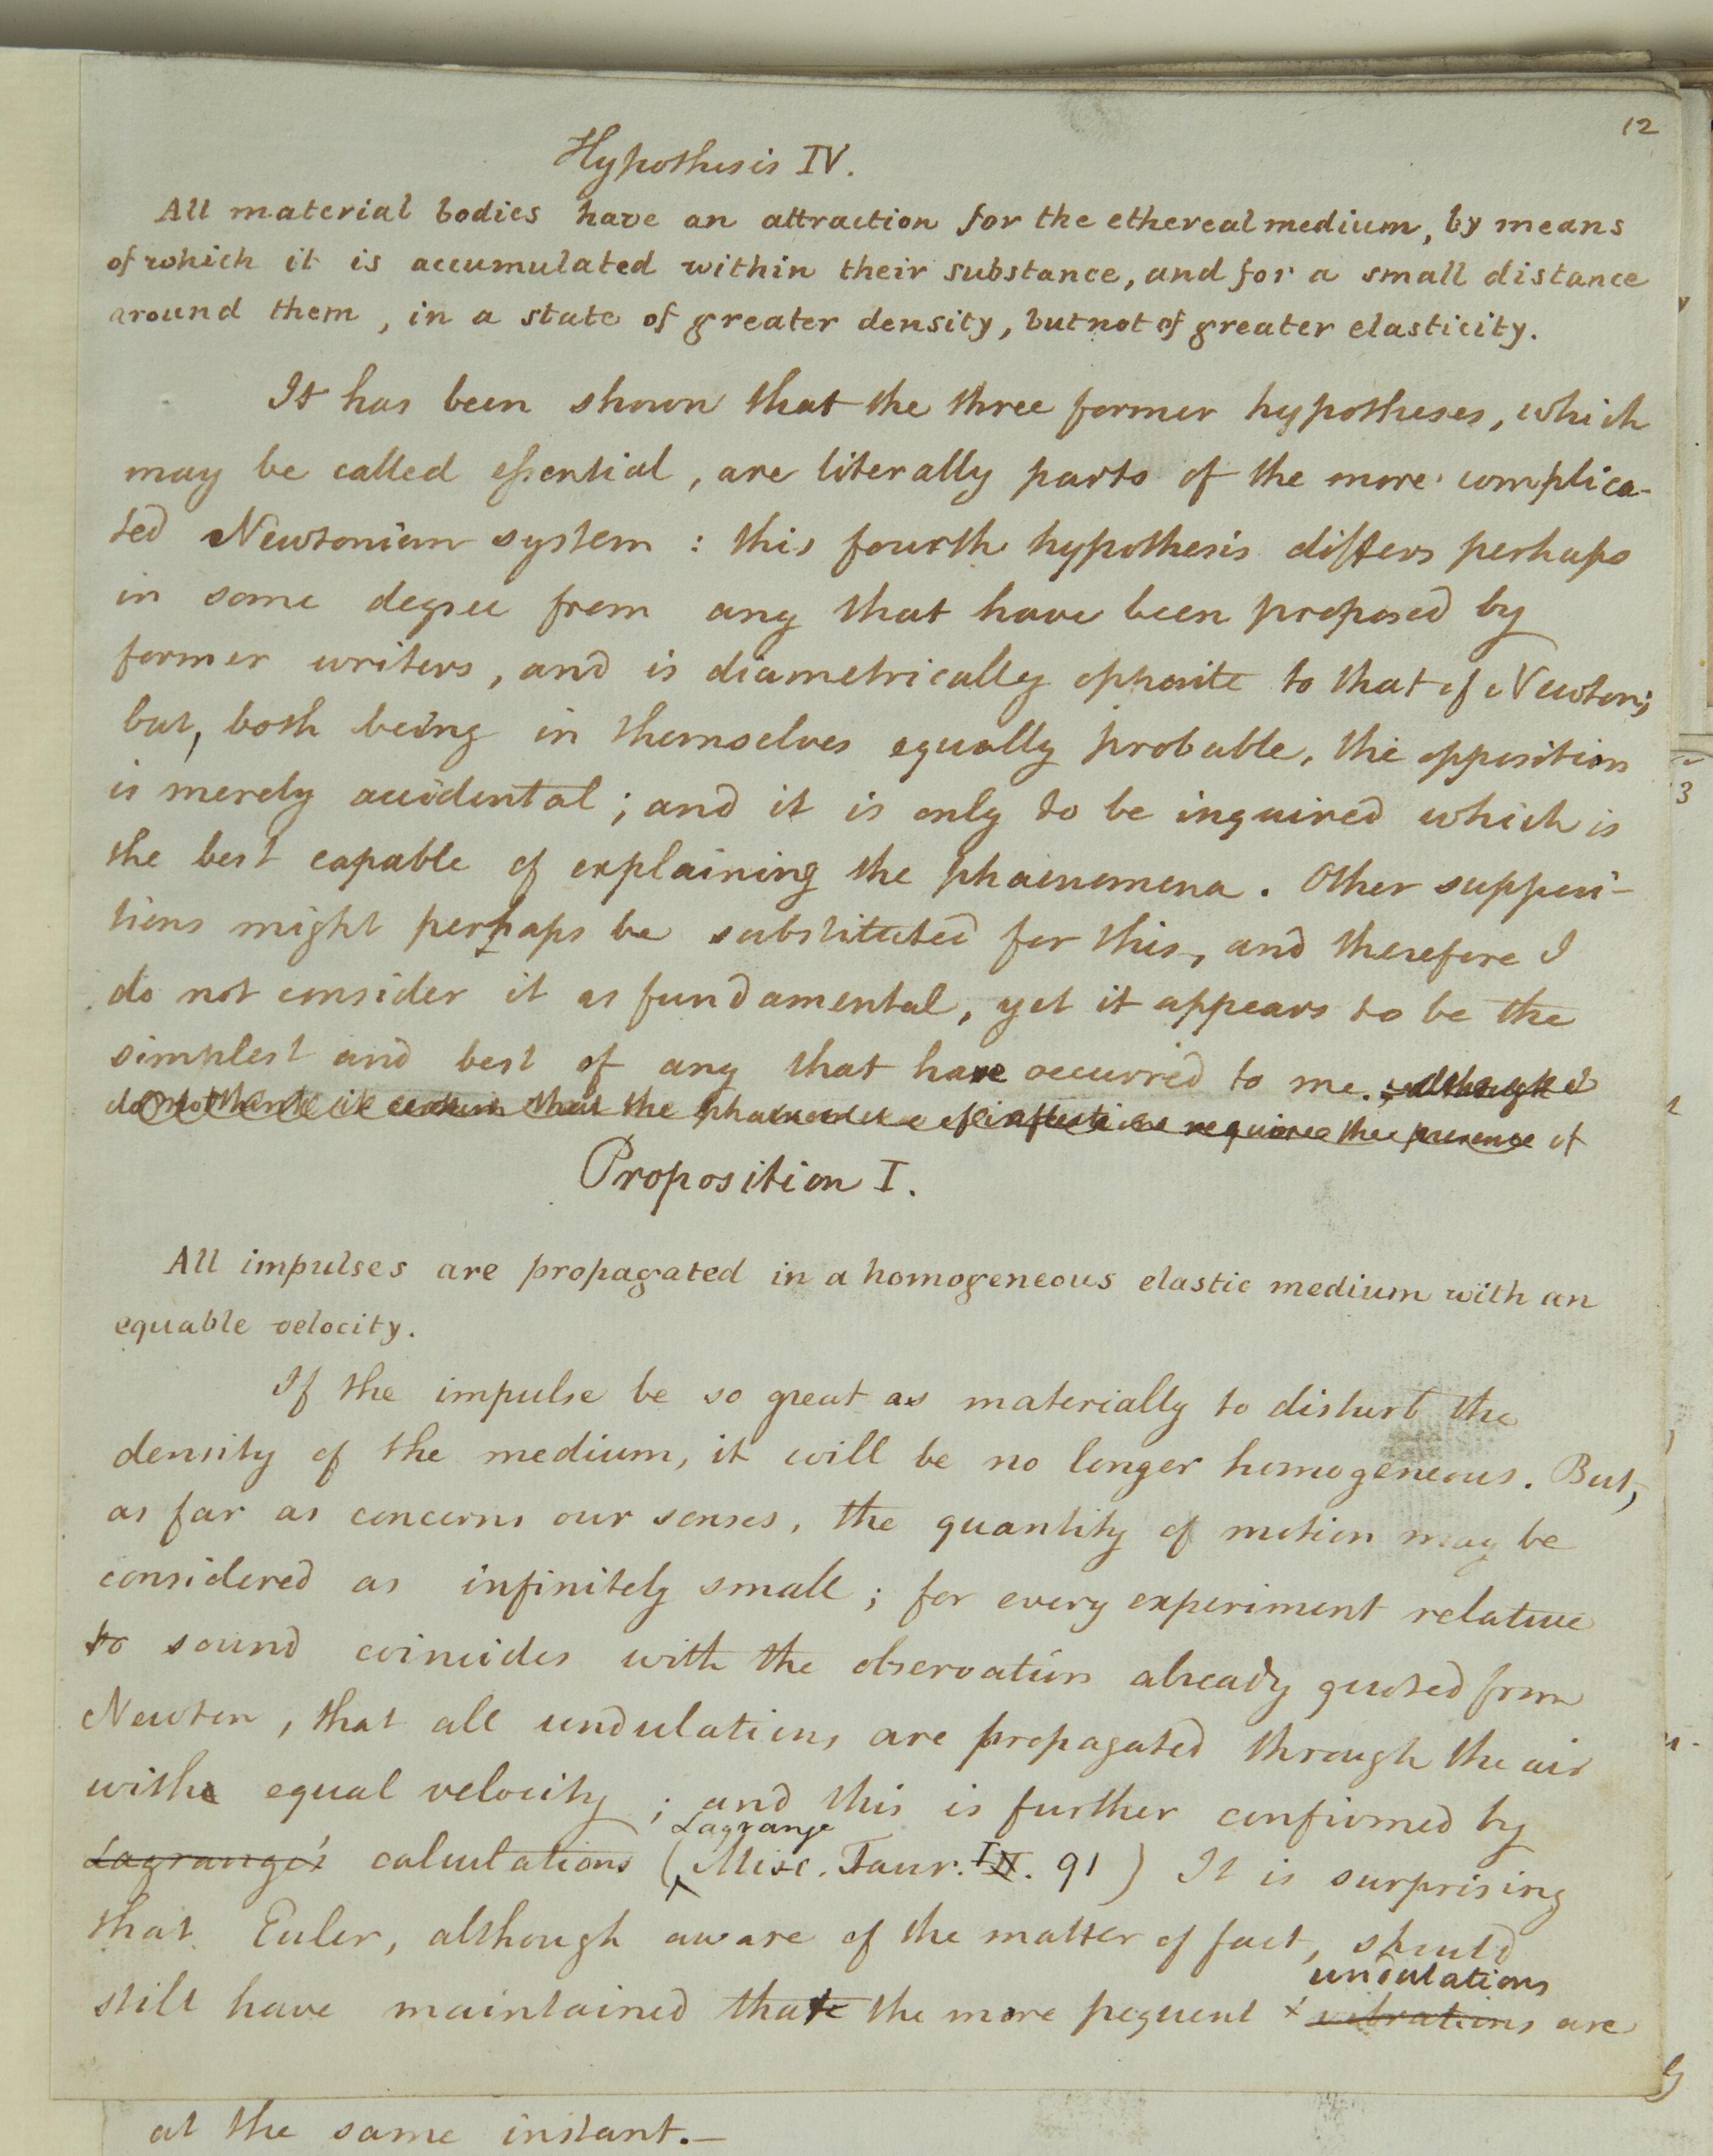 12
Hypothesis IV.
All material bodies have an attraction for the ethereal medium, by means
of which it is accumulated within their substance, and for a small distance
around them, in a state of greater density, but not of greater elasticity.
It has been shown that the three former hypotheses, which
may be called essential, are literally parts of the more complica-
ted Newtonian system: this fourth hypothesis differs perhaps
in some degree from any that have been proposed by
former writers, and is diametrically opposite to that of Newton;
but, both being in themselves equally probable, the opposition
is merely accidental; and it is only to be inquired which is
the best capable of explaining the phaenomena. Other supposi-
tions might perhaps be substituted for this, and therefore I
do not consider it as fundamental, yet it appears to be the
simplest and best of any that have occurred to me. ; although I
do not think it certain that the phaenomena of inflection require the presence of
Proposition I.
All impulses are propagated in a homogeneous elastic medium with an
equable velocity.
If the impulse be so great as materially to disturb the
density of the medium, it will be no longer homogeneous. But,
as far as concerns our senses, the quantity of motion may be
considered as infinitely small; for every experiment relative
to sound coincides with the observation already quoted from
Newton, that all undulations are propagated through the air
with equal velocity; and this is further confirmed by
Lagrange
Lagrange's calculations (Misc. Taur. I. 91) It is surprising
that Euler, although aware of the matter of fact, should
undulations
still have maintained that the more frequent x vibrations are
at the same instant.—
3